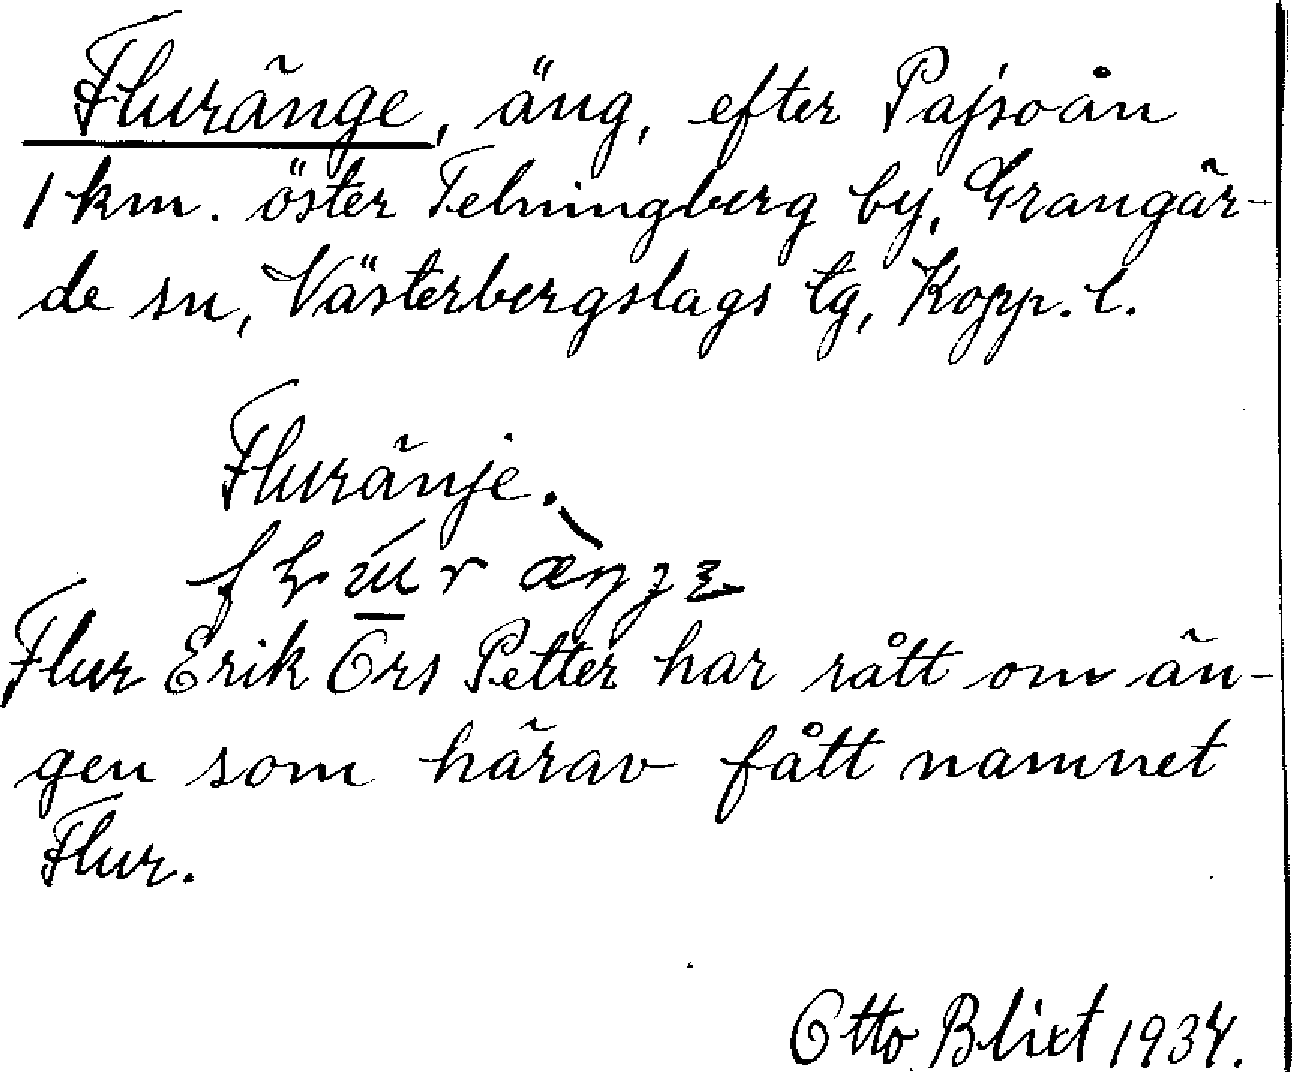 Fluränge, äng, efter Pajsoån
1 km. öster Telningberg by, Grangär-
de sn, Västerbergslags tg, Kopp. l.
Fluränje.
Flur Erik Ers Petter har rått om än-
gen som härav fått namnet
Flur.
Otto Blixt 1934.